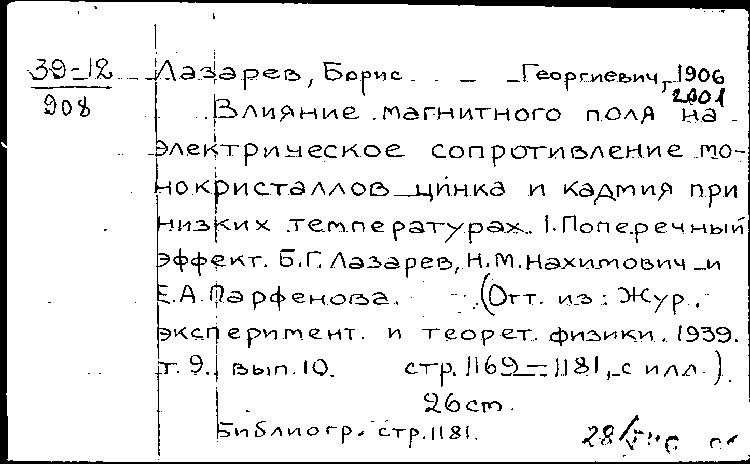 39-12 Лазарев, Борис Георгиевич, 1906
908 2001
Влияние магнитного поля на
электрическое сопротивление мо-
нокристаллов цинка и кадмия при
низких температурах. I. Поперечный
эффект. Б.Г. Лазарев, Н.М. Нахимович и
Е.А. Парфенова. (Отт. из: Жур.
эксперимент. и теорет. физики. 1939.
т. 9., вып. 10. стр. 1169-1181, с илл.).
26 cm.
Библиогр. стр. 1181.
28/